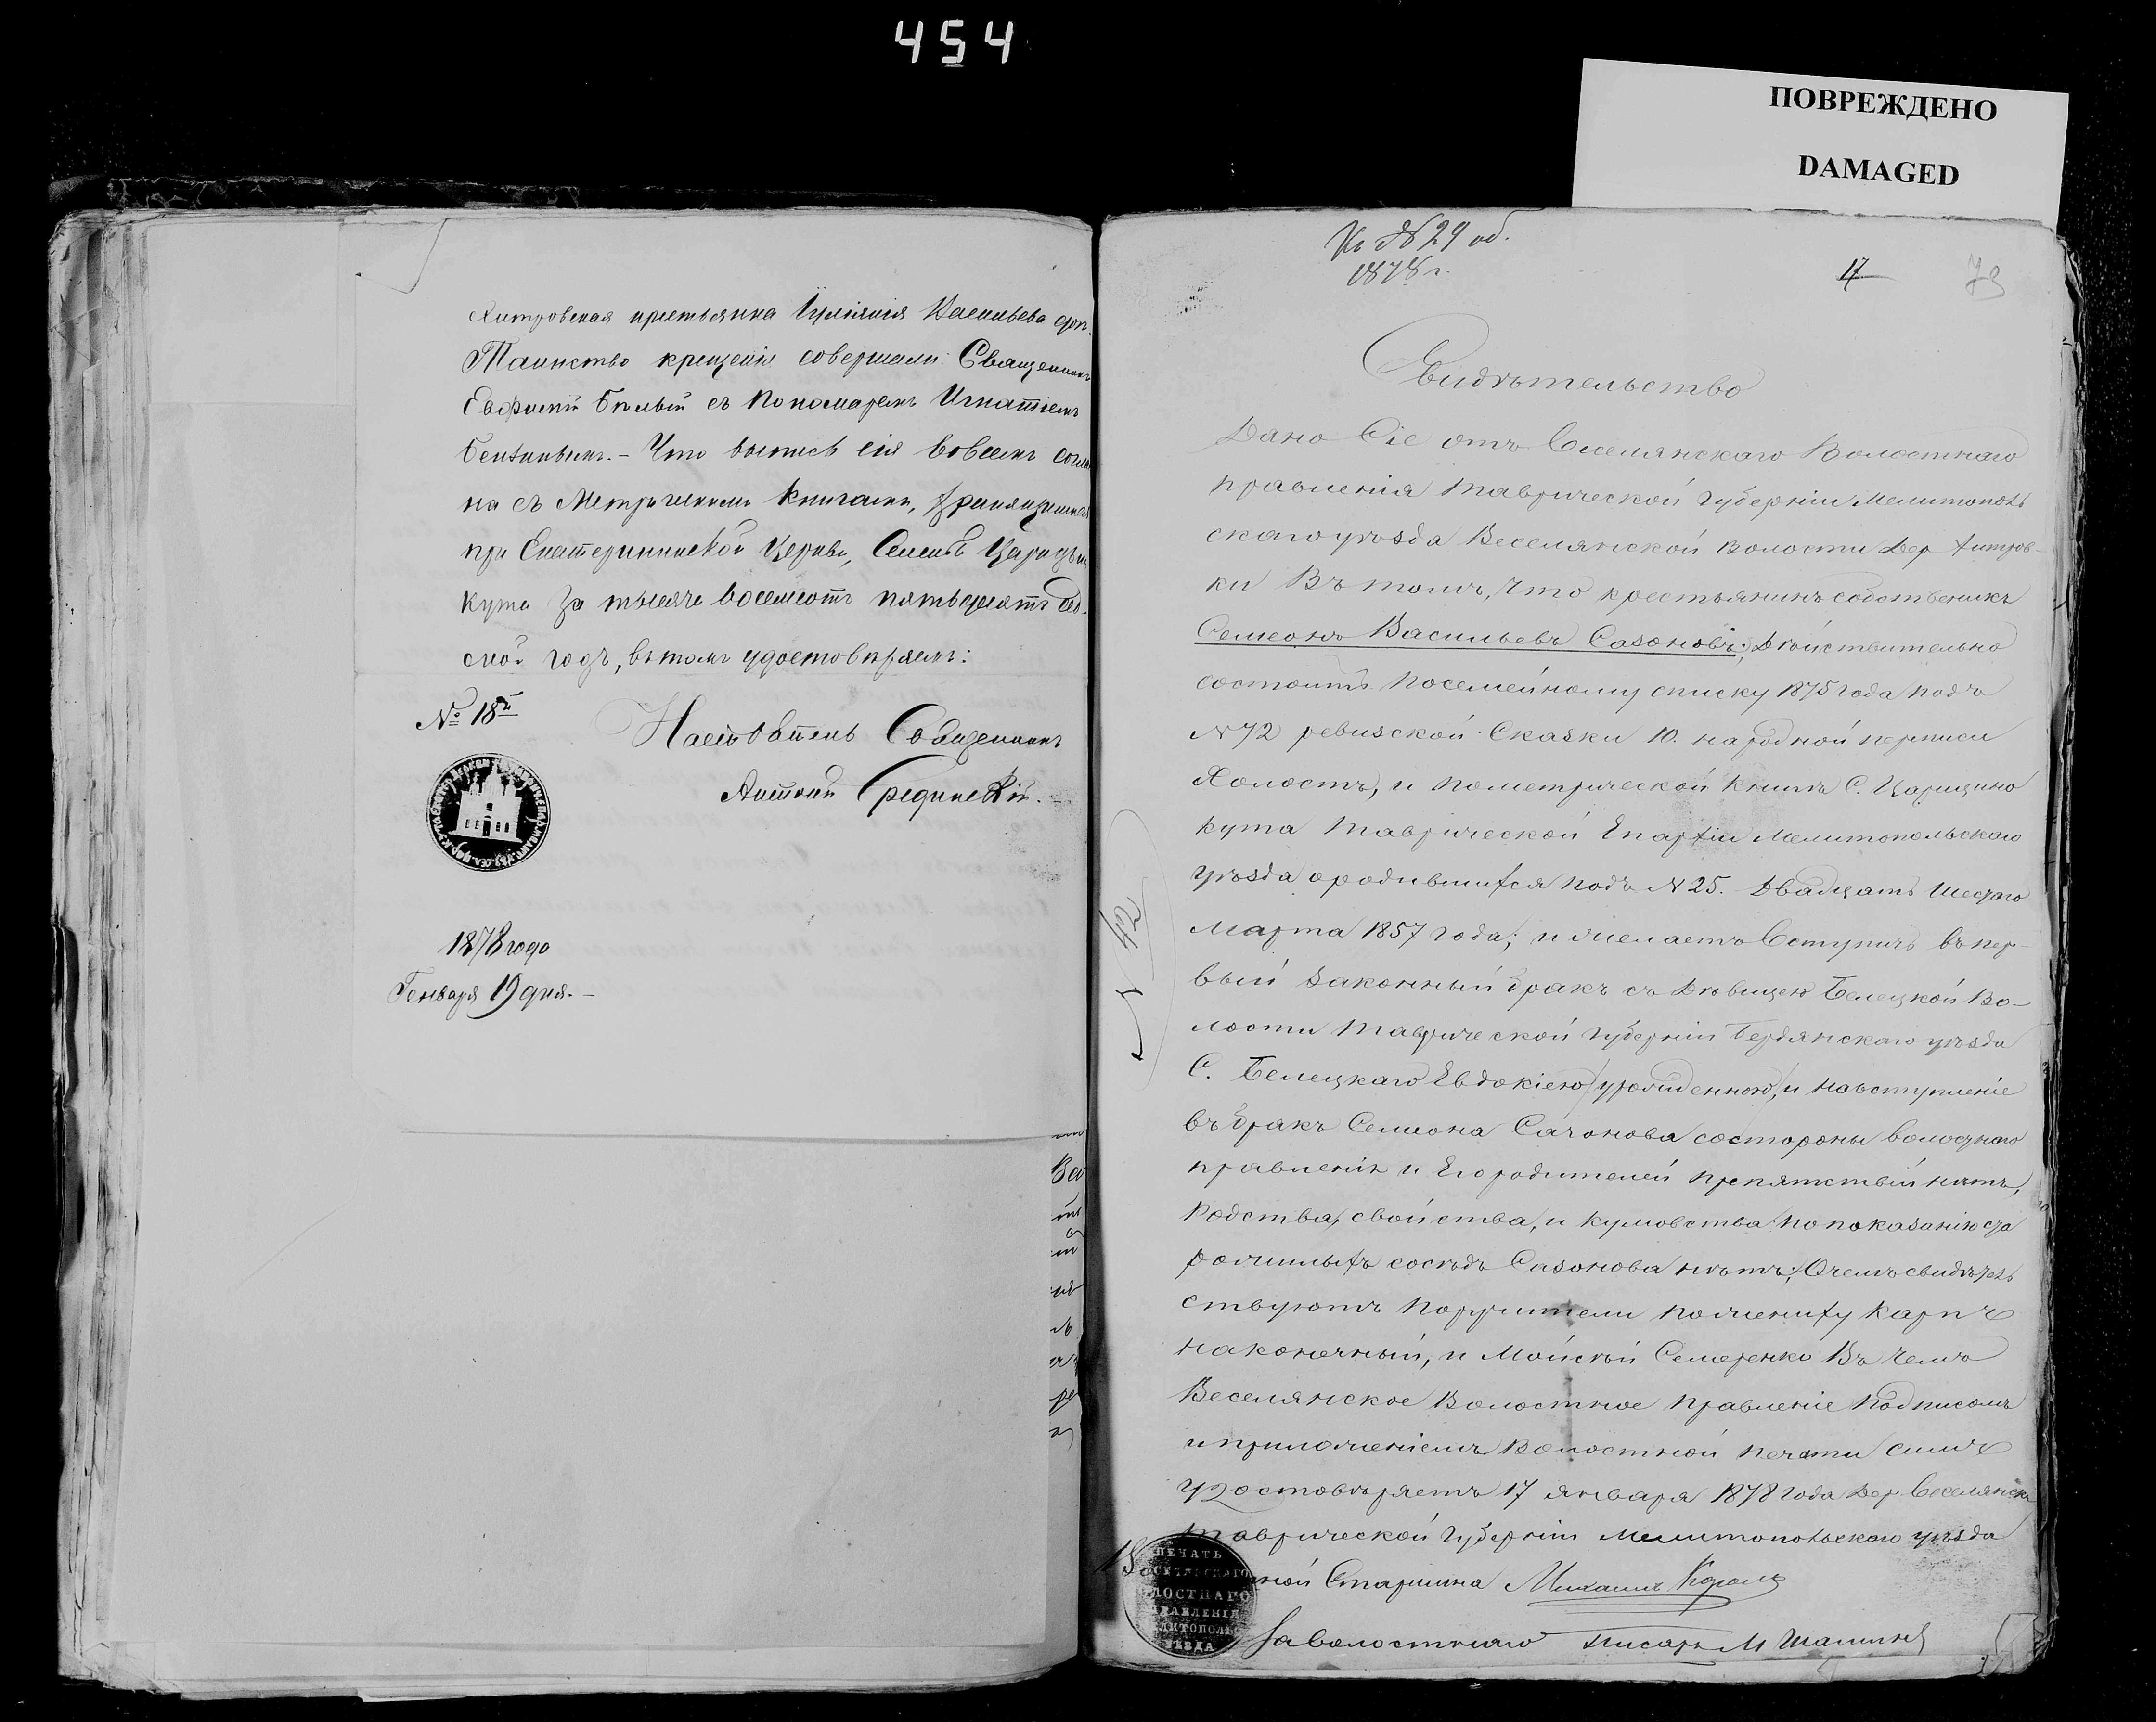 454
ПОВРЕЖДЕНО
DAMAGED
Хитровская крестьянка Іуліянія Васильева доч.
Таинство крещенія совершали: Священникъ
Евфимій Бѣлый съ Пономаремъ Игнатіемъ
что выпись сія вовсемъ соглас
на съ Метрическими книгами, хранящимися
при Екатерининской Церкви, Селенія Царицына
Кута За тысяча восемсотъ пятьдесятъ Се-
смой годъ, въ томъ удостовѣряемъ:
№ 18й
Настоятель Священникъ
Антоній Срединскій.
1878 года
Генваря 19 дня. –
Къ № 29 об.
1878 г.
17
79
Свидѣтельство
Дано Сіе отъ Веселянскаго Волостнаго
правленія Таврической Губерніи Мелитополь
скаго уѣзда Веселянской волости Дер Хитров-
ки Въ томъ, что крестьянинъ собственикъ
Семеонъ Васильевъ Сазоновъ; Дѣйствительно
состоитъ посемейному списку 1875 года подъ
№72 ревизской Сказки 10. народной переписи
Холостъ, и пометрической книгѣ С. Царицыно
кута Таврической Епархіи Мелитопольскаго
уѣзда о родившихся подъ №25. Двадцать Шестаго
Марта 1857 года; и желаетъ Вступить въ пер-
вый законный бракъ съ Дѣвицею Белецкой Во-
лости Таврической губерніи Бердянскаго уѣзда
С. Белецкаго Евдокіею урожденною, и навступленіе
въ бракъ Семиона Сазонова состороны волостного
правленія и Его родителей препятствій нѣтъ,
Родства, свойства, и кумовства попоказанію ста
рожилыхъ соседъ Сазонова нѣтъ, О чемъ свидѣтель
ствуютъ поручители поженіху Карпъ
наконечный, и Мойсѣй Семеренко Въ чемъ
Веселянское Волостное правленіе подписомъ
и приложеніемъ Волостной печати симъ
удостовѣряетъ 17 января 1878 года Дер. Веселянка
Таврической губерніи Мелитопольскаго уѣзда
ной Старшина Михаилъ Король
За волостнаго писарь М Шашинъ
№ 42
ПЕЧАТЬ
ВЕСЕЛЯНСКАГО
ВОЛОСТНАГО
ПРАВЛЕНІЯ
МЕЛИТОПОЛЬ
УѢЗДА